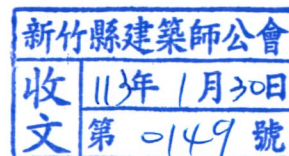 新竹縣建築師公會
收文
113年1月30日
第0149號